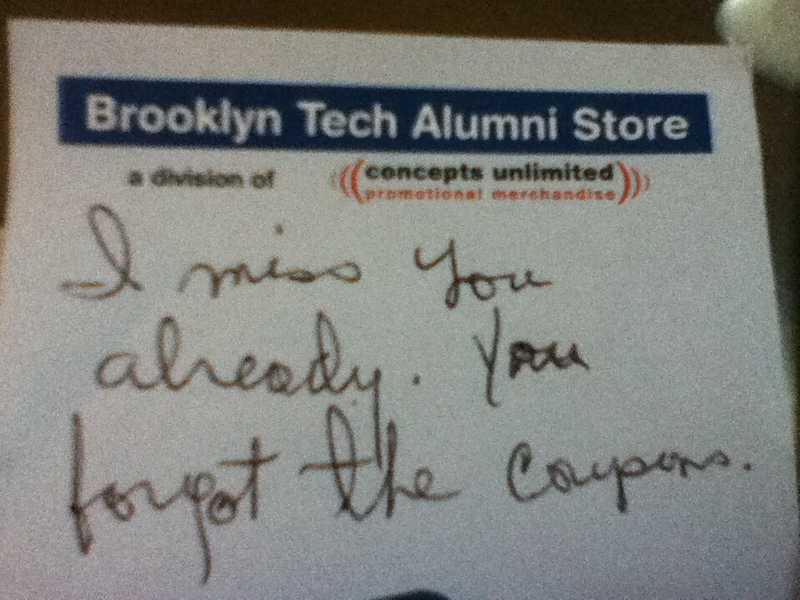 Brooklyn Tech Alumni Store
a division of ((concepts unlimited))
promotional merchandise
I miss you
already. You
forgot the coupons.